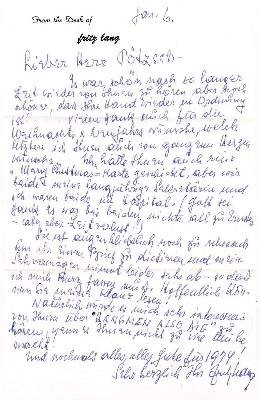 From the Desk of
fritz lang
Jan. 6.
Lieber Herr Pötzsch -
Es war schön nach so langer
Zeit wieder von Ihnen zu hören aber noch
schöner, dass Ihre Hand wieder in Ordnung
ist! Vielen Dank auch für die
Weihnachts & Neujahrs wünsche, welche
ich Ihnen auch von ganzem Herzen
wünsche. Ich hatte Ihnen auch eine
"Merry Christmas" Karte geschickt, aber wir
beide, meine langjährige Sekretärin und
ich waren beide im Hospital, (gott sei
dank es war bei beiden nichts
aber Zeitverlust!)
Es ist augenblicklich noch zu schwer
einen Brief zu diktieren und mein
Sehvermögen nimmt leider sehr ab -
Hoffentlich können
Sie lesen!
Natürlich würde es mich sehr interessieren
von Ihnen über "HANGMEN ALSO DIE" zu
hören, wenn es Ihnen nicht zu viel Mühe
macht!
Und nochmals alles, alles Gute für 1974!
Sehr herzlich Ihr Fritz Lang